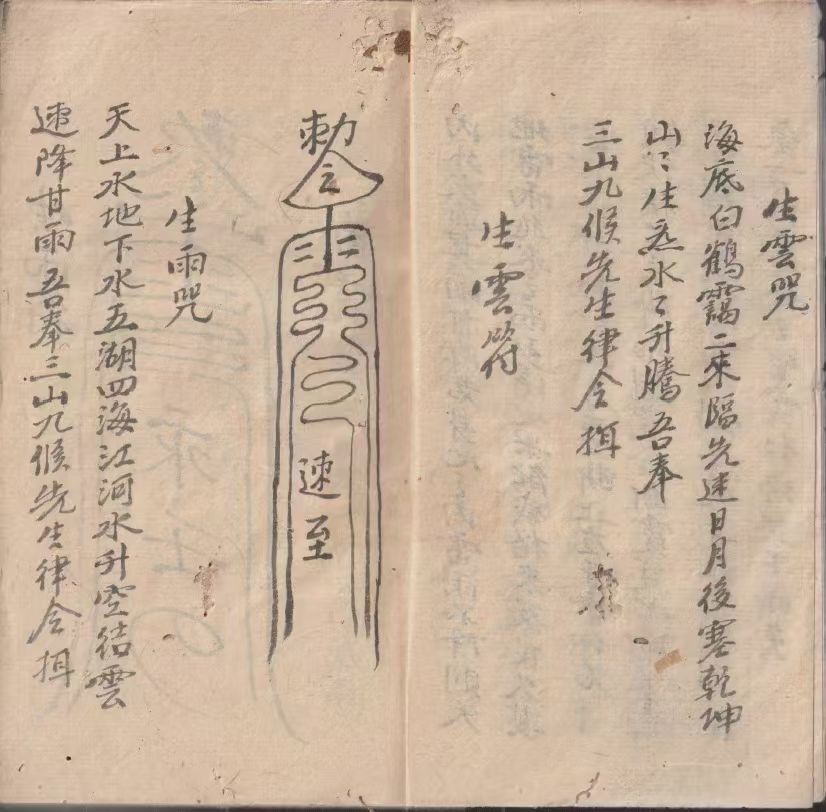 生雲咒
海底白鶴靄二來臨先迷日月後塞乾坤
山〻生烝水〻升騰吾奉
三山九候先生律令挕
生雲符
勅令
速至
生雨咒
天上水地下水五湖四海江河水升空結雲
速降甘雨吾奉三山九候先生律令挕